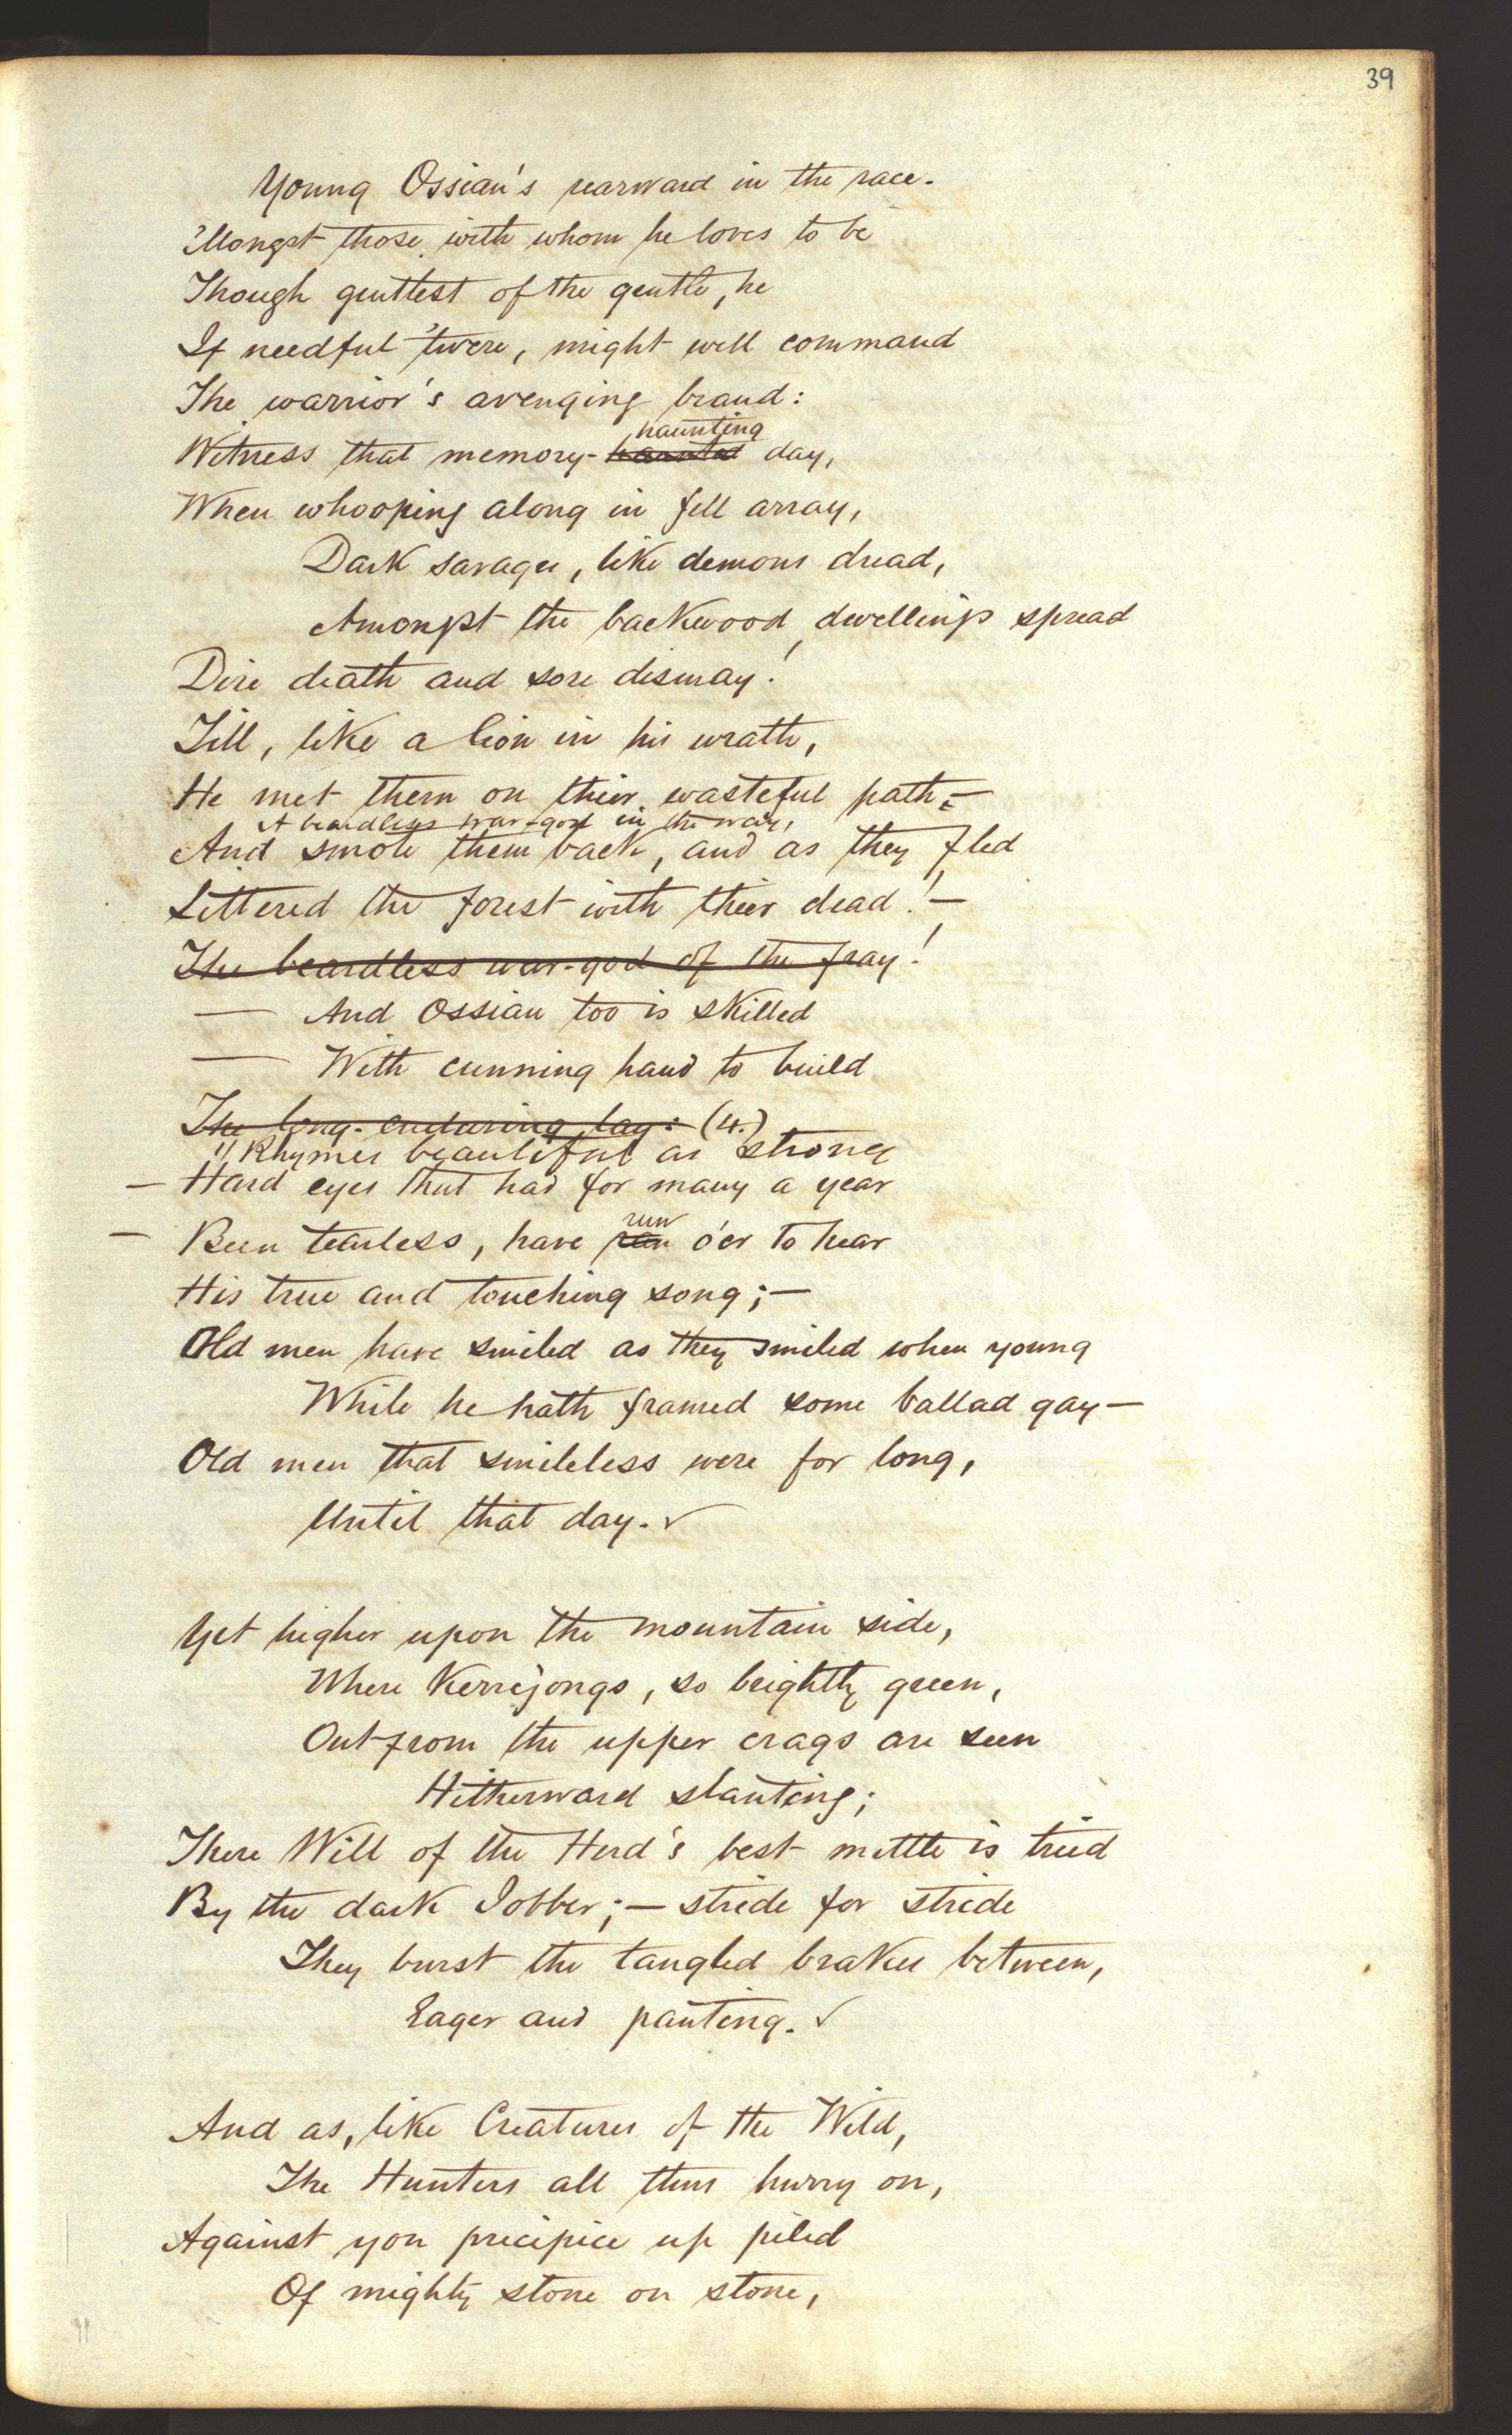 39
Young Ossian's rearward in the race.
'Mongst those with whom he loves to be
Though gentlest of the gentle, he
If needful 'twere, might well command
The warrior's avenging brand:
haunting
Witness that memory-haunted day,
When whooping along in fell array,
Dark savages, like demons dread,
Amongst the backwood dwellings spread
Dire death and sore dismay!
Till, like a lion in his wrath,
He met them on their wasteful path,—
A beardless war-god in the way,
And smote them back, and as they fled
Littered the forest with their dead!—
The beardless war-god of the fray!
— And Ossian too is skilled
— With cunning hand to build
The long-enduring lay: (4.)
Rhymes beautiful as strong
— Hard eyes that had for many a year
run
— Been tearless, have ran o'er to hear
His true and touching song;—
Old men have smiled as they smiled when young
While he hath framed some ballad gay—
Old men that smileless were for long,
Until that day. ✓
Yet higher upon the mountain side,
Where Kerrijongs, so brightly green,
Out from the upper crags are seen
Hitherward slanting;
There Will of the Herd's best mettle is tried
By the dark Jobber;— stride for stride
They burst the tangled brakes between,
Eager and panting. ✓
And as, like Creatures of the Wild,
The Hunters all thus hurry on,
Against yon precipice up piled
Of mighty stone on stone,